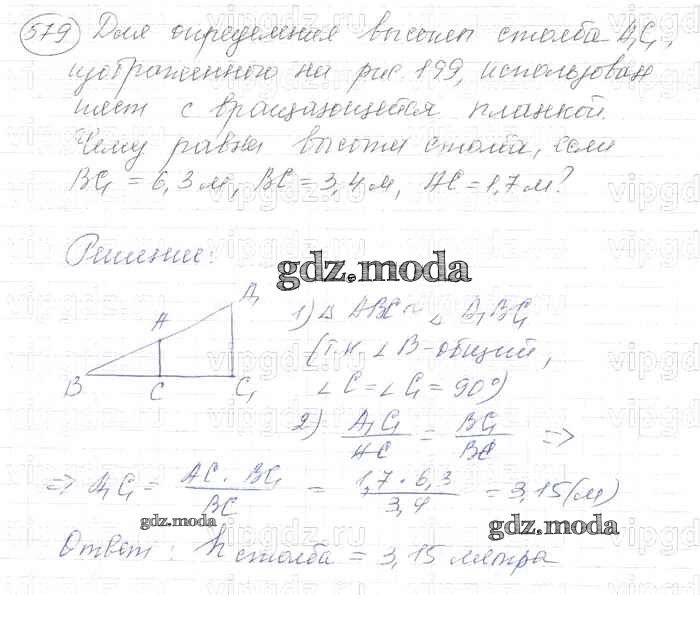 579) Для определения высоты столба A₁C₁,
изображенного на рис. 199, использован
шест с вращающейся планкой.
Чему равна высота столба, если
BC₁ = 6,3 м, BC = 3,4 м, AC = 1,7 м?
Решение:
gdz.moda
A₁
A
B C C₁
1) △ ABC ~ △ A₁BC₁
(т.к. ∠ B - общий,
∠ C = ∠ C₁ = 90°)
2) A₁C₁/AC = BC₁/BC =>
=> A₁C₁ = AC · BC₁/BC = 1,7 · 6,3/3,4 = 3,15 (м)
gdz.moda
gdz.moda
Ответ: h столба = 3,15 метра